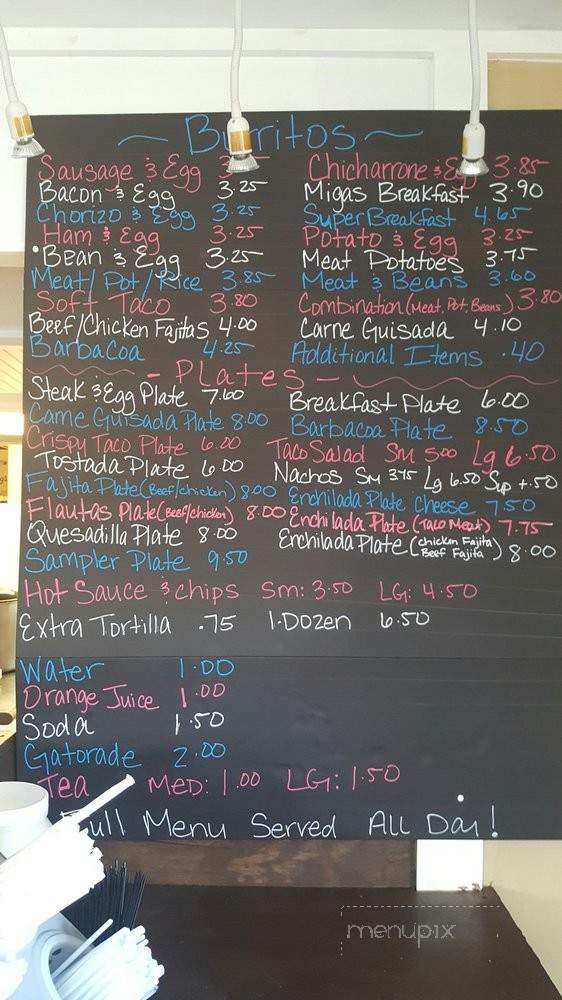 ~ Burritos ~
Sausage & Egg 3.
Chicharrone & Eg 3.85
Bacon & Egg 3.25
Migas Breakfast 3.90
Chorizo & Egg 3.25
Super Breakfast 4.65
Ham & Egg 3.25
Potato & Egg 3.25
Bean & Egg 3.25
Meat Potatoes 3.75
Meat/Pot/Rice 3.85
Meat & Beans 3.60
Soft Taco 3.80
Combination (Meat, Pot, Beans) 3.80
Beef/Chicken Fajitas 4.00
Carne Guisada 4.10
Barbacoa 4.25
Additional Items .40
- Plates -
Steak & Egg Plate 7.60
Breakfast Plate 6.00
Carne Guisada Plate 8.00
Barbacoa Plate 8.50
Crispy Taco Plate 6.00
Taco Salad Sm 5.00 Lg 6.50
Tostada Plate 6.00
Nachos Sm 3.75 Lg 6.50 Sup +.50
Fajita Plate (Beef/chicken) 8.00
Enchilada Plate Cheese 7.50
Flautas Plate (Beef/chicken) 8.00
Enchilada Plate (Taco Meat) 7.75
Quesadilla Plate 8.00
Enchilada Plate (chicken Fajita Beef Fajita) 8.00
Sampler Plate 9.50
Hot Sauce & chips Sm: 3.50 LG: 4.50
Extra Tortilla .75 1-Dozen 6.50
Water 1.00
Orange Juice 1.00
Soda 1.50
Gatorade 2.00
Tea Med: 1.00 LG: 1.50
Full Menu Served All Day!
menupix